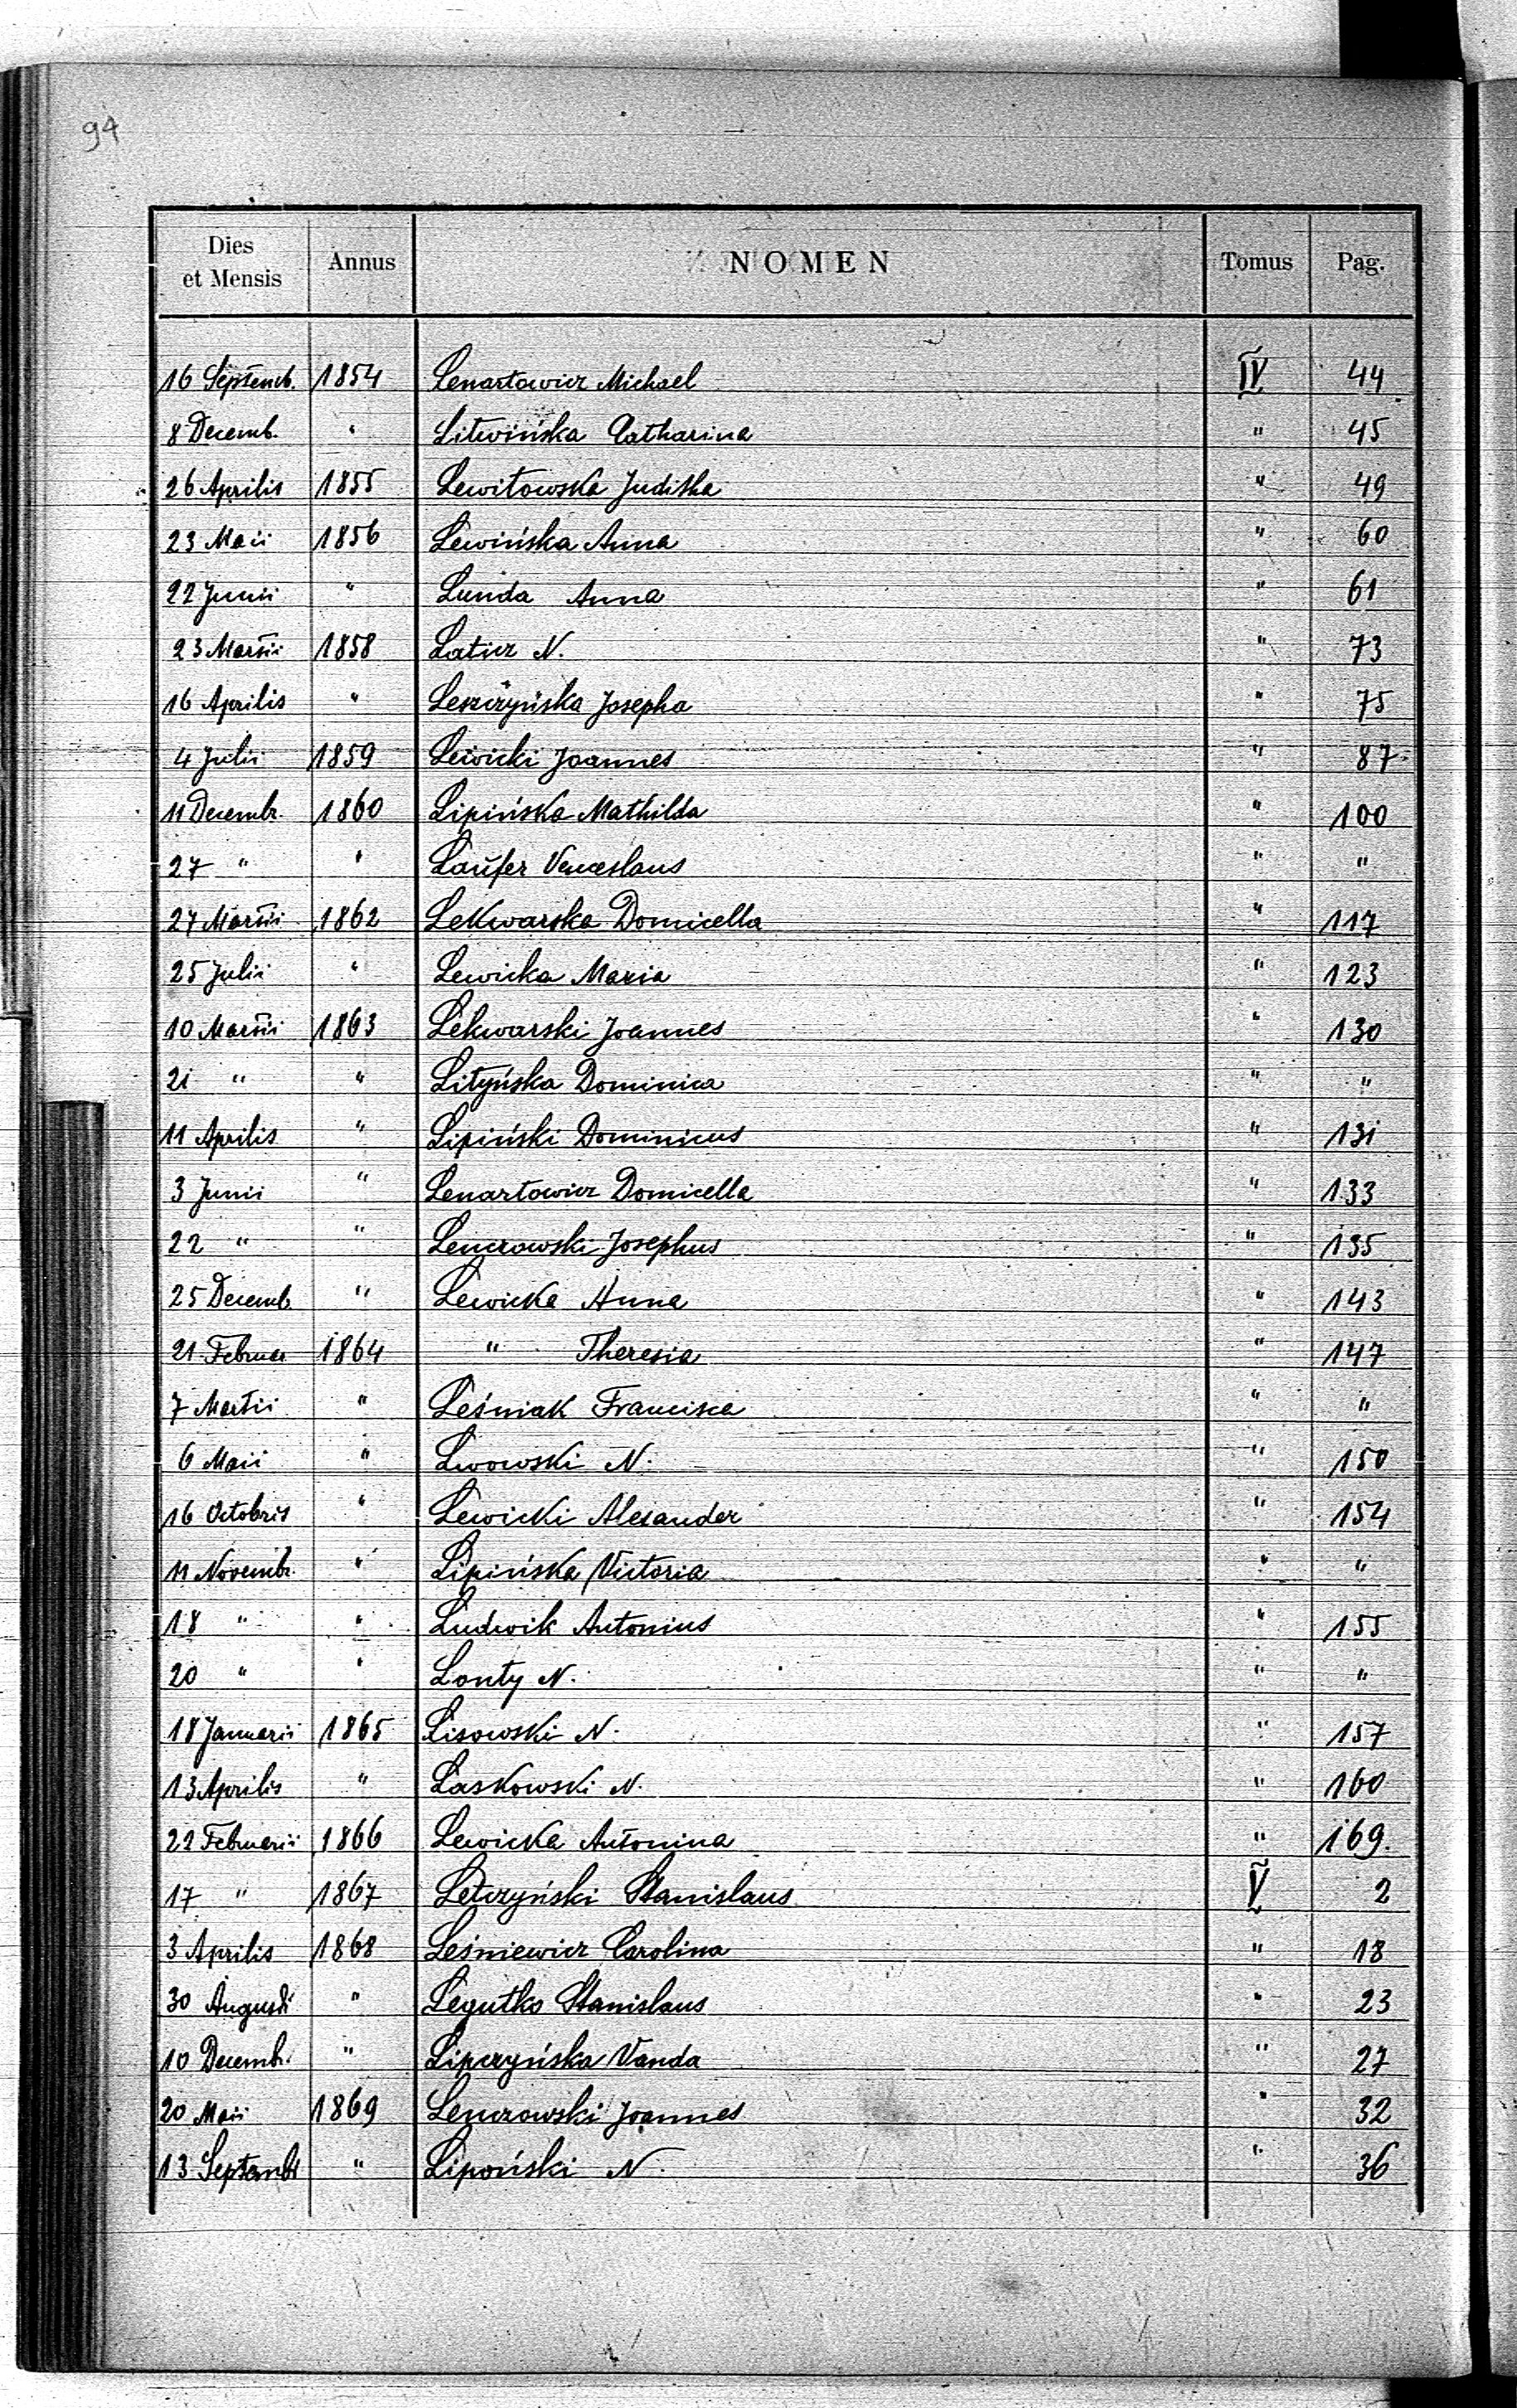 94
Dies et Mensis Annus NOMEN Tomus Pag.
16 Septemb. 1854 Lenartowicz Michael IV 44
8 Decemb. " Litwińska Catharina " 45
26 Aprilis 1855 Lewitowska Juditha " 49
23 Maii 1856 Lewińska Anna " 60
22 Junii " Lunda Anna " 61
23 Martii 1858 Laticz N. " 73
16 Aprilis " Leszczyńska Josepha " 75
4 Julii 1859 Lewicki Joannes " 87
11 Decembr. 1860 Lipińska Mathilda " 100
27 " " Laŭfer Venceslaus " "
27 Martii 1862 Lekwarska Domicella " 117
25 Julii " Lewicka Maria " 123
10 Martii 1863 Lekwarski Joannes " 130
21 " " Lityńska Dominica " "
11 Aprilis " Lipiński Dominicus " 131
3 Junii " Lenartowicz Domicella " 133
22 " " Lenczowski Josephus " 135
25 Decemb. " Lewicka Anna " 143
21 Februar 1864 " Theresia " 147
7 Martii " Leśniak Francisca " "
6 Maii " Lwowski N. " 150
16 Octobris " Lewicki Alexander " 154
11 Novembr. " Lipińska Victoria " "
18 " " Ludwik Antonius " 155
20 " " Lonty N. " "
18 Januarii 1865 Lisowski N. " 157
13 Aprilis " Laskowski N. " 160
22 Februarii 1866 Lewicka Antonina " 169.
17 " 1867 Letczyński Stanislaus V 2
3 Aprilis 1868 Leśniewicz Carolina " 18
30 Augusti " Legutko Stanislaus " 23
10 Decembr. " Lipczyńska Vanda " 27
20 Maii 1869 Lenczowski Joannes " 32
13 Septembr " Lipoński N. " 36